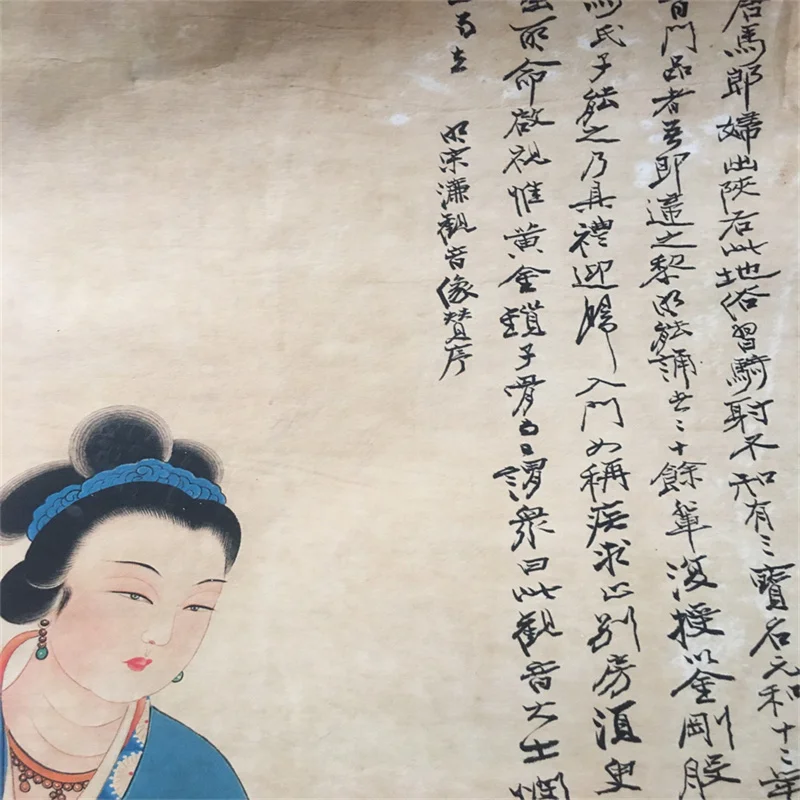 唐馬郎婦出陝右此地俗習騎射不知有三寶名元和十二年
普門品者吾即妻之黎明能誦者二十餘輩復授以金剛般
馬氏子能之乃具禮迎歸入門以稱疾求止別房須臾
至所命啟視惟黃金鎖子骨而已謂眾曰此觀音大士憫
明宋濂觀音像贊序